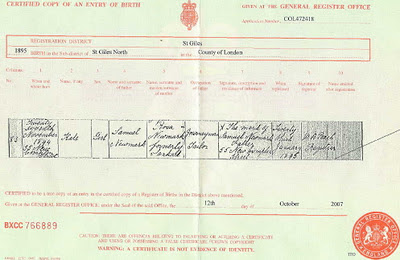 CERTIFIED COPY OF AN ENTRY OF BIRTH
GIVEN AT THE GENERAL REGISTER OFFICE
Application Number COL472618
REGISTRATION DISTRICT St Giles
1895 BIRTH in the Sub-district of St Giles North in the County of London
Columns:- 1 2 3 4 5 6 7 8 9 10
When and where born
Name, if any
Sex
Name and surname of father
Name, surname and maiden surname of mother
Occupation of father
Signature, description and residence of informant
When registered
Signature of registrar
Name entered after registration
Twenty seventh November 1894
Kate
Girl
Samuel Newmark
Newmark formerly
Journeyman Tailor
X The mark of Samuel Newmark Father
January 1895
Registrar
CERTIFIED to be a true copy of an entry in the certified copy of a Register of Births in the District above mentioned.
Given at the GENERAL REGISTER OFFICE, under the Seal of the said Office, the 12th day of October 2007
BXCC 766889
CAUTION: THERE ARE OFFENCES RELATING TO FALSIFYING OR ALTERING A CERTIFICATE
AND USING OR POSSESSING A FALSE CERTIFICATE. ©CROWN COPYRIGHT
WARNING: A CERTIFICATE IS NOT EVIDENCE OF IDENTITY.